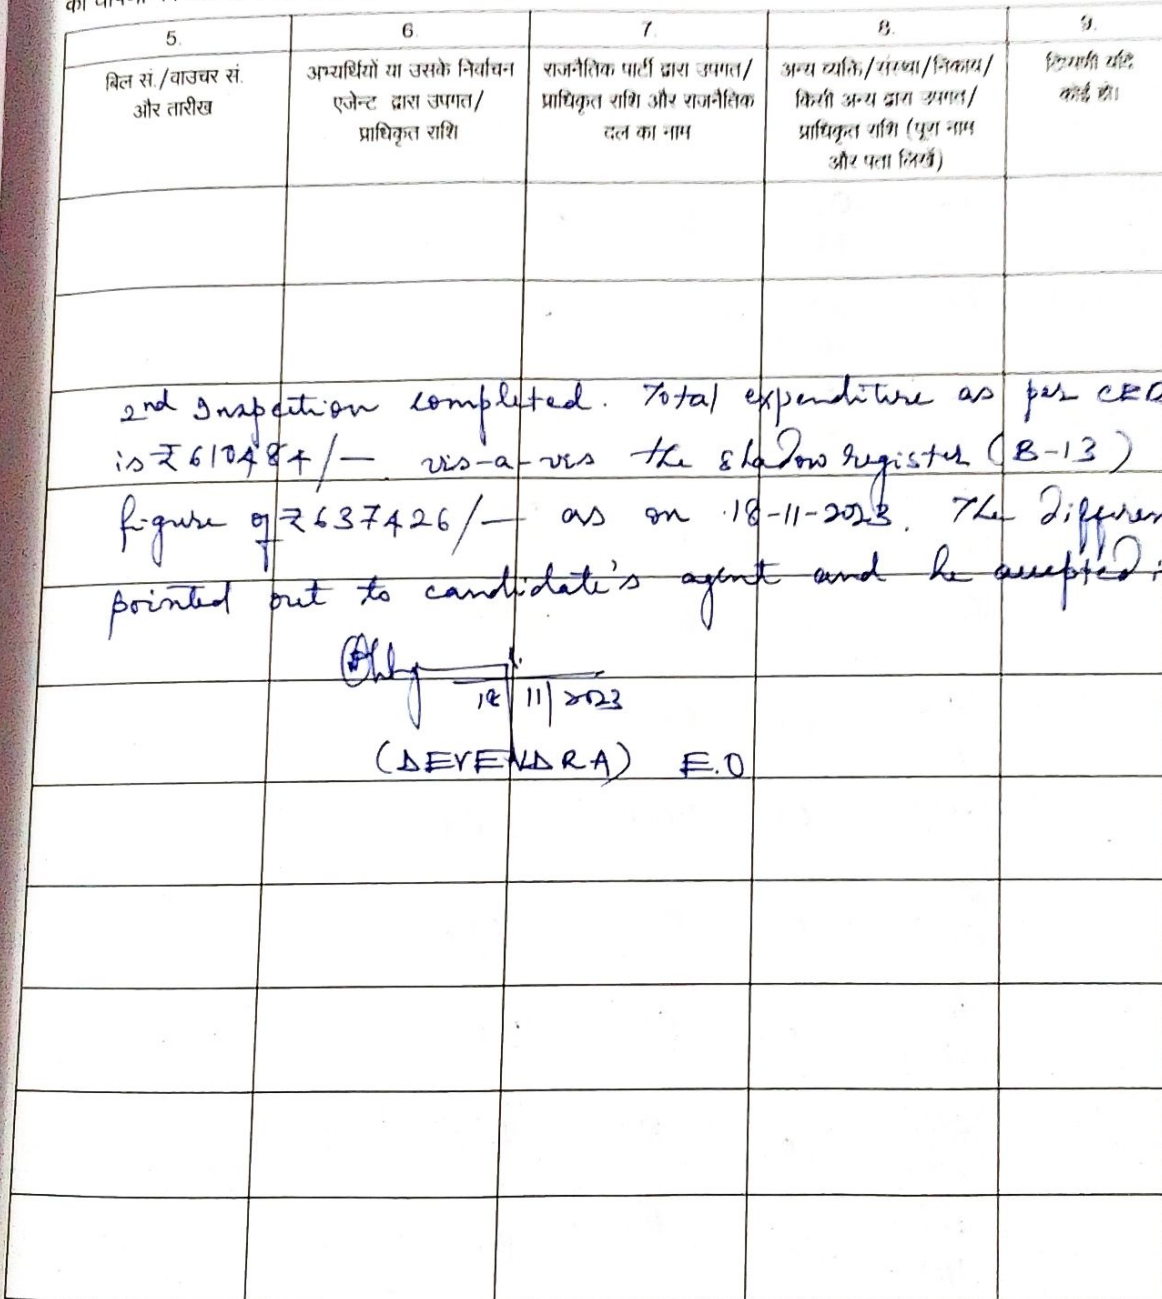 5. 6. 7. 8. 9.
बिल सं./वाउचर सं. और तारीख
अभ्यर्थियों या उसके निर्वाचन एजेन्ट द्वारा उपगत/ प्राधिकृत राशि
राजनैतिक पार्टी द्वारा उपगत/ प्राधिकृत राशि और राजनैतिक दल का नाम
अन्य व्यक्ति/संस्था/निकाय/ किसी अन्य द्वारा उपगत/ प्राधिकृत राशि (पूरा नाम और पता लिखें)
टिप्पणी यदि कोई हो।
2nd Inspection completed. Total expenditure as per CEO
is ₹ 610484/- vis-a-vis the shadow register (B-13)
figure of ₹ 637426/- as on 18-11-2023. The differen
pointed out to candidate's agent and he accepted
18/11/2023
(DEVENDRA) E.O